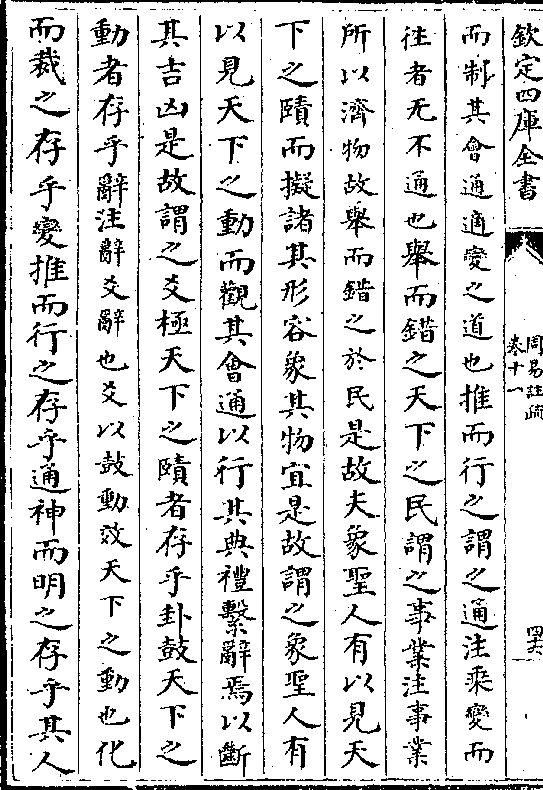 欽定四庫全書
周易註疏
卷十一
四六
而制其會通適變之道也推而行之謂之通注乘變而
往者无不通也舉而錯之天下之民謂之事業注事業
所以濟物故舉而錯之於民是故夫象聖人有以見天
下之賾而擬諸其形容象其物宜是故謂之象聖人有
以見天下之動而觀其會通以行其典禮繫辭焉以斷
其吉凶是故謂之爻極天下之賾者存乎卦鼓天下之
動者存乎辭注辭爻辭也爻以鼓動效天下之動也化
而裁之存乎變推而行之存乎通神而明之存乎其人